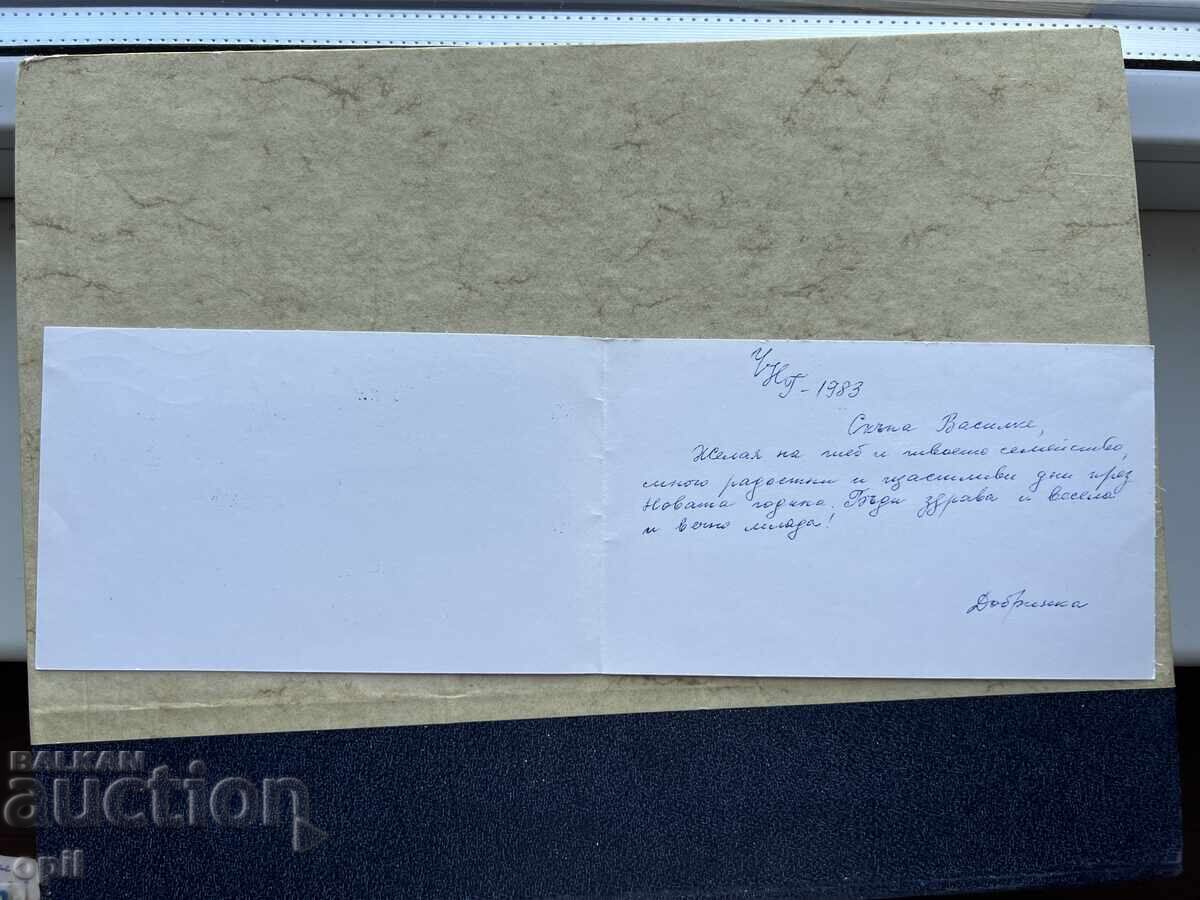 ЧНГ - 1983
Скъпа Василке,
Желая на теб и твоето семейство,
много радостни и щастливи дни през
Новата година. Бъди здрава и весела
и вечно млада!
Добринка
BALKAN
auction
opil